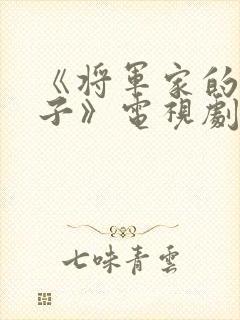 《将軍家的
子》電視劇
七味青雲